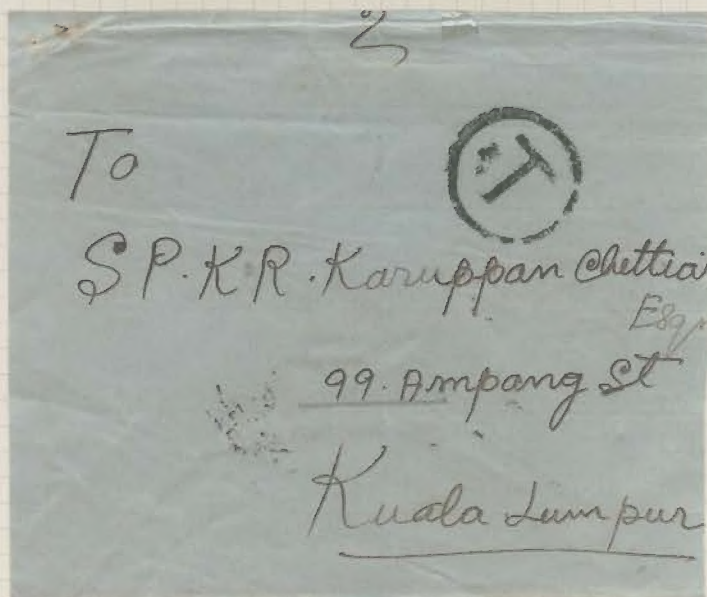 T
To
S P. K R. Karuppan Chettia
Esqr
99. Ampang St
Kuala Lumpur